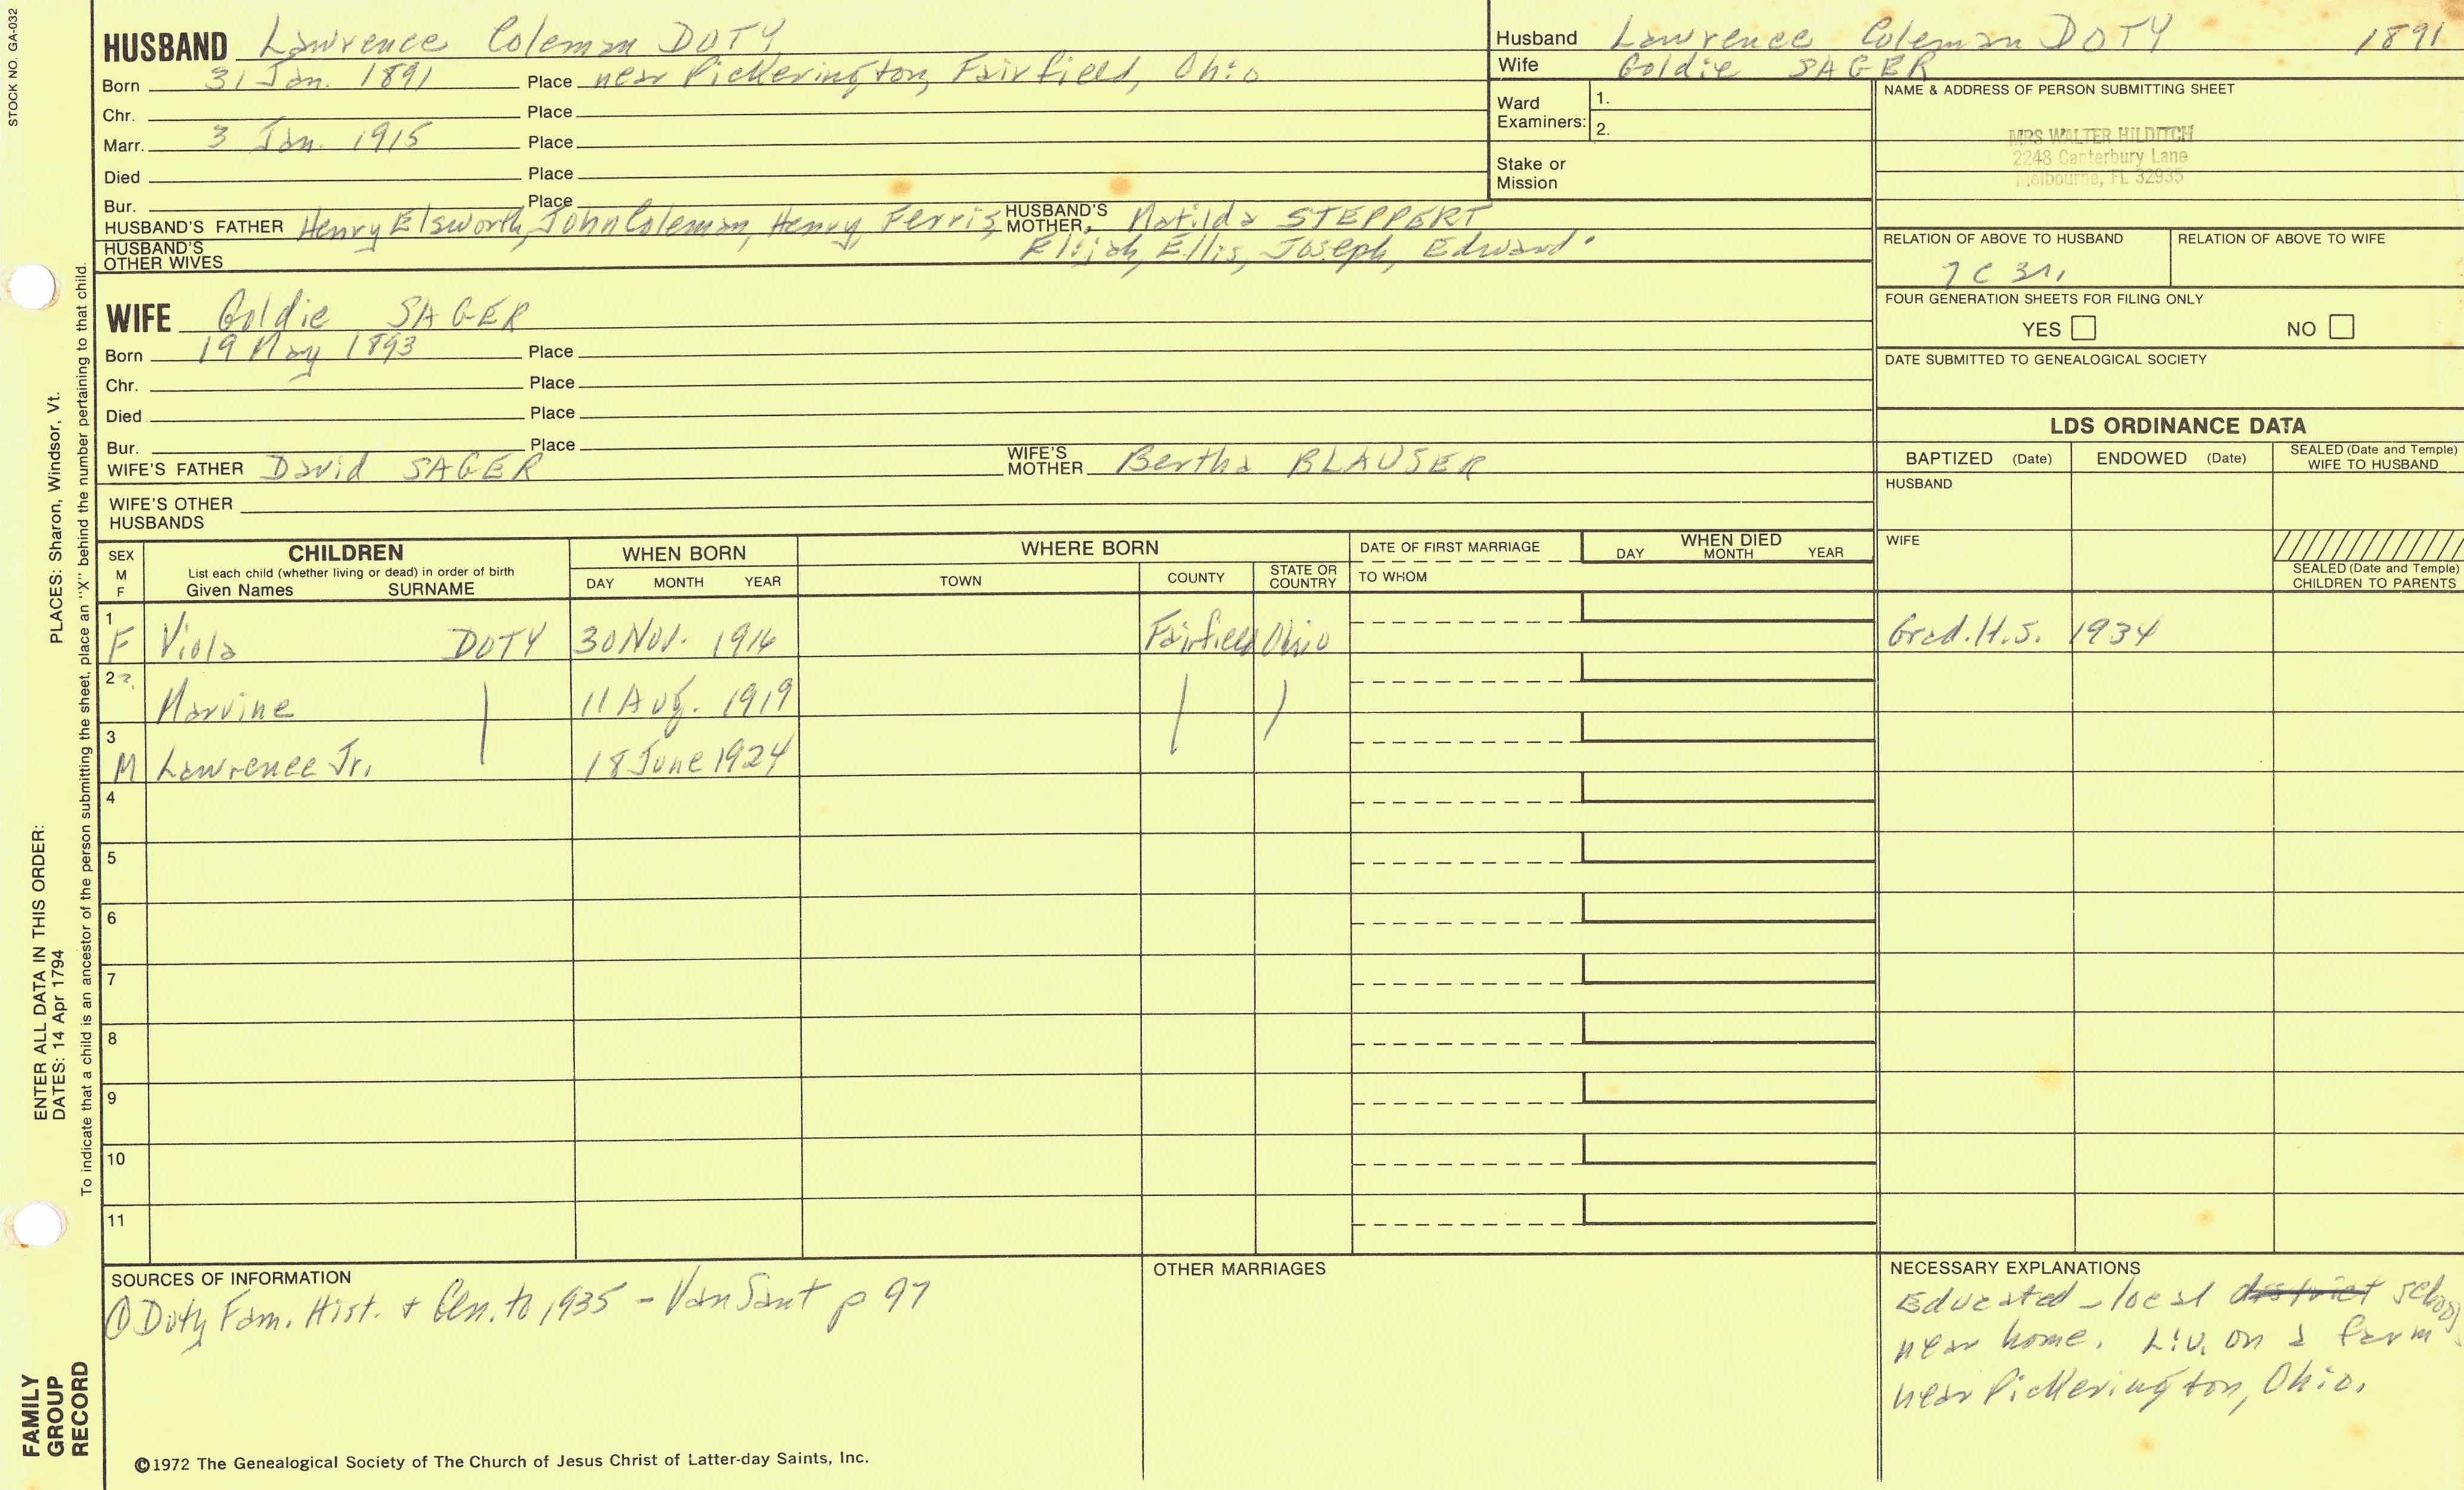 STOCK NO. GA-032
HUSBAND Lawrence Coleman DOTY
Born 31 Jan. 1891 Place near Pickerington, Fairfield, Ohio
Chr. Place
Marr. 3 Jan. 1915 Place
Died Place
Bur. Place
HUSBAND'S FATHER Henry Elsworth, John Coleman, Henry, Ferris, HUSBAND'S MOTHER, Matilda STEPPERT
HUSBAND'S OTHER WIVES Elijah, Ellis, Joseph, Edward.
WIFE Goldie SAGER
Born 19 May 1893 Place
Chr. Place
Died Place
Bur. Place
WIFE'S FATHER David SAGER WIFE'S MOTHER Bertha BLAUSER
WIFE'S OTHER HUSBANDS
Husband Lawrence Coleman DOTY 1891
Wife Goldie SAGER
Ward Examiners: 1.
2.
Stake or Mission
NAME & ADDRESS OF PERSON SUBMITTING SHEET
MRS WALTER HILDITCH
2248 Canterbury Lane
Melbourne, FL 32935
RELATION OF ABOVE TO HUSBAND RELATION OF ABOVE TO WIFE
7C3r,
FOUR GENERATION SHEETS FOR FILING ONLY
YES NO
DATE SUBMITTED TO GENEALOGICAL SOCIETY
LDS ORDINANCE DATA
BAPTIZED (Date) ENDOWED (Date) SEALED (Date and Temple) WIFE TO HUSBAND
HUSBAND
WIFE
SEALED (Date and Temple) CHILDREN TO PARENTS
SEX M F CHILDREN WHEN BORN WHERE BORN DATE OF FIRST MARRIAGE WHEN DIED
List each child (whether living or dead) in order of birth
Given Names SURNAME DAY MONTH YEAR TOWN COUNTY STATE OR COUNTRY TO WHOM DAY MONTH YEAR
1 F Viola DOTY 30 Nov. 1916 Fairfield Ohio Grad. H.S. 1934
2 ?. Marvine | 11 Aug. 1919 | |
3 M Lawrence Jr. 18 June 1924
4
5
6
7
8
9
10
11
SOURCES OF INFORMATION
① Doty Fam. Hist. + Gen. to 1935 - Van Sant p 97
OTHER MARRIAGES
NECESSARY EXPLANATIONS
Educated - local district school
near home. Liv. on a farm
near Pickerington, Ohio.
©1972 The Genealogical Society of The Church of Jesus Christ of Latter-day Saints, Inc.
FAMILY GROUP RECORD
ENTER ALL DATA IN THIS ORDER:
DATES: 14 Apr 1794
PLACES: Sharon, Windsor, Vt.
To indicate that a child is an ancestor of the person submitting the sheet, place an "X" behind the number pertaining to that child.